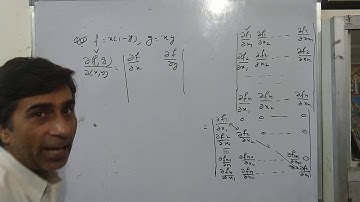 f = x(1-y), g = xy
∂(f,g)/∂(x,y) = | ∂f/∂x ∂f/∂y
| ∂f₁/∂x₁ ∂f₁/∂x₂ - - - - ∂f₁/∂xₙ |
| ∂f₂/∂x₁ ∂f₂/∂x₂ - - - ∂f₂/∂xₙ |
| ∂fₙ/∂x₁ ∂fₙ/∂x₂ - - - ∂fₙ/∂xₙ |
= | ∂f₁/∂x₁ 0 0 - - 0 |
| ∂f₂/∂x₁ ∂f₂/∂x₂ 0 - - 0 |
| ∂fₙ/∂x₁ ∂fₙ/∂x₂ - - - ∂fₙ/∂xₙ |